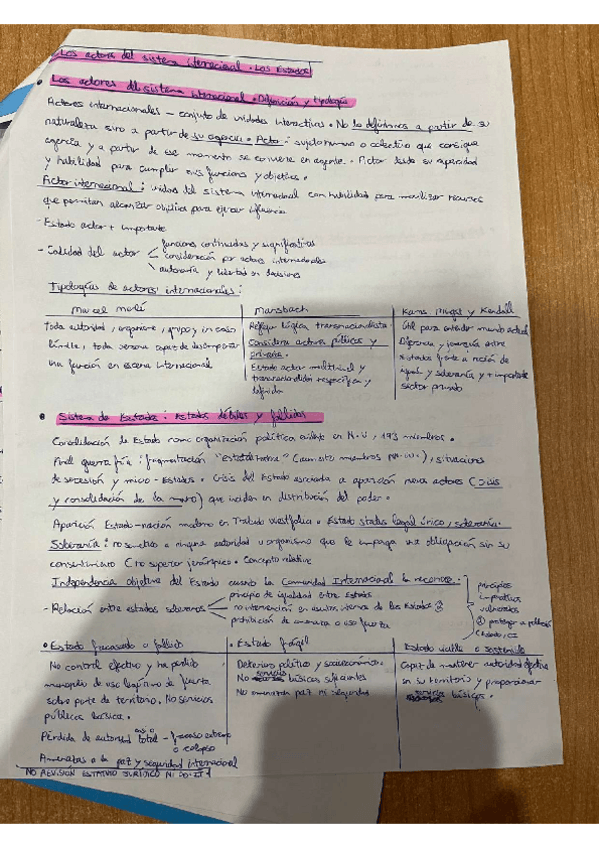 Los actores del sistema internacional. Los Estados
Los actores del sistema internacional. Definición y tipología
Actores internacionales – conjunto de unidades interactivas. No lo definimos a partir de su
naturaleza sino a partir de su agencia. Actor: sujeto humano o colectivo que consigue
agencia y a partir de ese momento se convierte en agente. Actor dada su capacidad
y habilidad para cumplir sus funciones y objetivos.
Actor internacional: unidad del sistema internacional con habilidad para movilizar recursos
que permitan alcanzar objetivos para ejercer influencia
- Estado actor + importante
- Calidad del actor
funciones continuadas y significativas
consideración por actores internacionales
autonomía y libertad en decisiones
Tipologías de actores internacionales:
Marcel Merle
Toda autoridad, organismo, grupo y, in caso
límite, toda persona capaz de desempeñar
una función en escena internacional
Mansbach
Reflejar lógica transnacionalista
Considera activos públicos y
privados.
Estado actor
y
definida
Kendall
Útil para entender mundo actual
Diferencia y entre
estados frente a noción de
y soberanía y + importante
sector privado
Sistema de Estados: Estados débiles y fallidos
Consolidación de Estado como organización política en N.U, 193 miembros.
Final guerra fría: fragmentación "estatalizadora" (aumento miembros NN.UU.), situaciones
de secesión y micro-Estados. Crisis del Estado asociada a aparición nuevos actores (crisis
y consolidación de la mano) que incidan en distribución del poder.
Aparición Estado-nación moderno en Tratado Westfalia. Estado status legal único, soberanía.
Soberanía: no sometido a ninguna autoridad u organismo que le imponga una obligación sin su
consentimiento (no superior jerárquico). Concepto relativo
Independencia objetiva del Estado cuando la Comunidad Internacional la reconoce.
- Relación entre estados soberanos
principio de igualdad entre Estados
no intervención en asuntos internos de los Estados
prohibición de amenaza o uso fuerza
principios
imperativos
vulnerados
proteger a población
Estado fracasado o fallido
No control efectivo y ha perdido
monopolio de uso legítimo de fuerza
sobre parte de territorio. No servicios
públicos básicos.
Pérdida de autoridad casi o total – fracaso extremo
o colapso
Amenazas a la paz y seguridad internacional
NO REVISIÓN ESTATUTO JURÍDICO NI DO
Estado frágil
Deterioro político y socioeconómico.
No servicios básicos suficientes
No amenazan paz ni seguridad
Estado viable o sostenible
Capaz de mantener autoridad efectiva
en su territorio y proporcionar
servicios básicos.